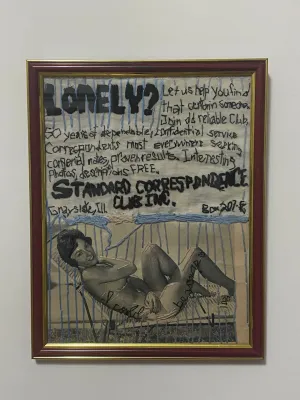 LONELY? Let us help you find
that certain someone.
Join old reliable Club,
50 years of dependable, confidential service
Correspondents most everywhere seeking
congenial mates, proven results. Interesting
photos, descriptions FREE.
STANDARD CORRESPONDENCE
CLUB INC.
Grayslake, Ill. Box 207-B,